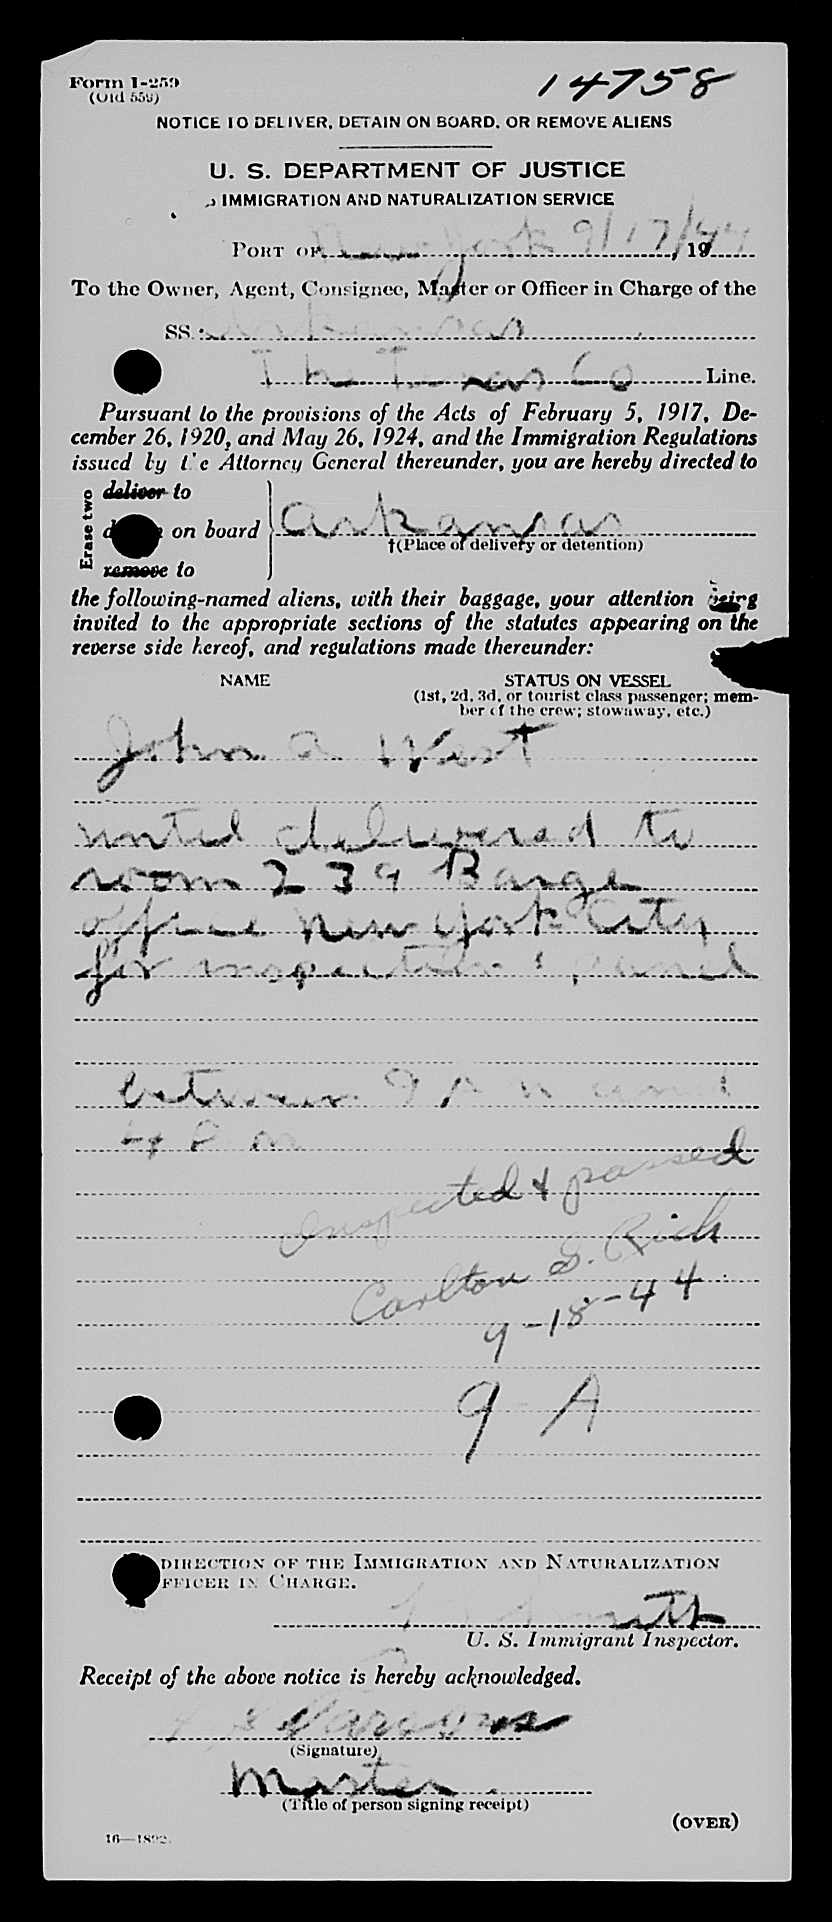 Form I-259
(Old 559)
14758
NOTICE TO DELIVER, DETAIN ON BOARD, OR REMOVE ALIENS
U. S. DEPARTMENT OF JUSTICE
IMMIGRATION AND NATURALIZATION SERVICE
PORT OF New York 9/17/44, 19
To the Owner, Agent, Consignee, Master or Officer in Charge of the
SS. Arkansas
The Texas Co Line.
Pursuant to the provisions of the Acts of February 5, 1917, De-
cember 26, 1920, and May 26, 1924, and the Immigration Regulations
issued by the Attorney General thereunder, you are hereby directed to
Erase two
deliver to
on board
remove to
Arkansas
†(Place of delivery or detention)
the following-named aliens, with their baggage, your attention being
invited to the appropriate sections of the statutes appearing on the
reverse side hereof, and regulations made thereunder:
NAME STATUS ON VESSEL
(1st, 2d, 3d, or tourist class passenger; mem-
ber of the crew; stowaway, etc.)
John A West
until delivered to
room 239 Barge
office New York City
for inspection & passed
between 9 A M and
4 P M
Inspected & passed
Carlton S. Rich
9-18-44
9 A
DIRECTION OF THE IMMIGRATION AND NATURALIZATION
OFFICER IN CHARGE.
Smith
U. S. Immigrant Inspector.
Receipt of the above notice is hereby acknowledged.
Parsons
(Signature)
Master
(Title of person signing receipt)
(OVER)
16—1892